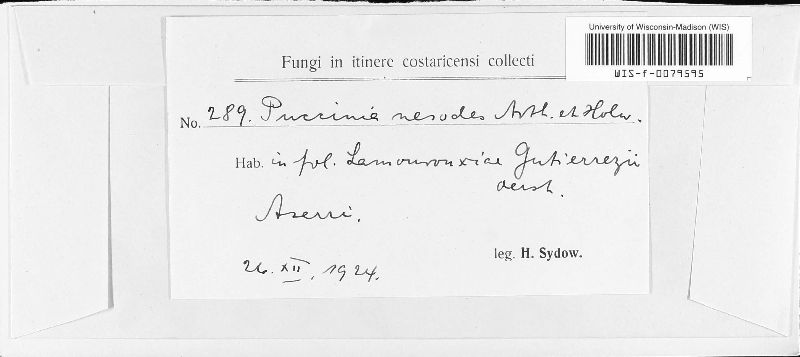 University of Wisconsin-Madison (WIS)
WIS-f-0079595
Fungi in itinere costaricensi collecti
No. 289. Puccinia nesodes Arth. et Holw.
Hab. in fol. Lamourouxiae Gutierrezii
Oerst.
Aserri.
leg. H. Sydow.
26. XII. 1924.